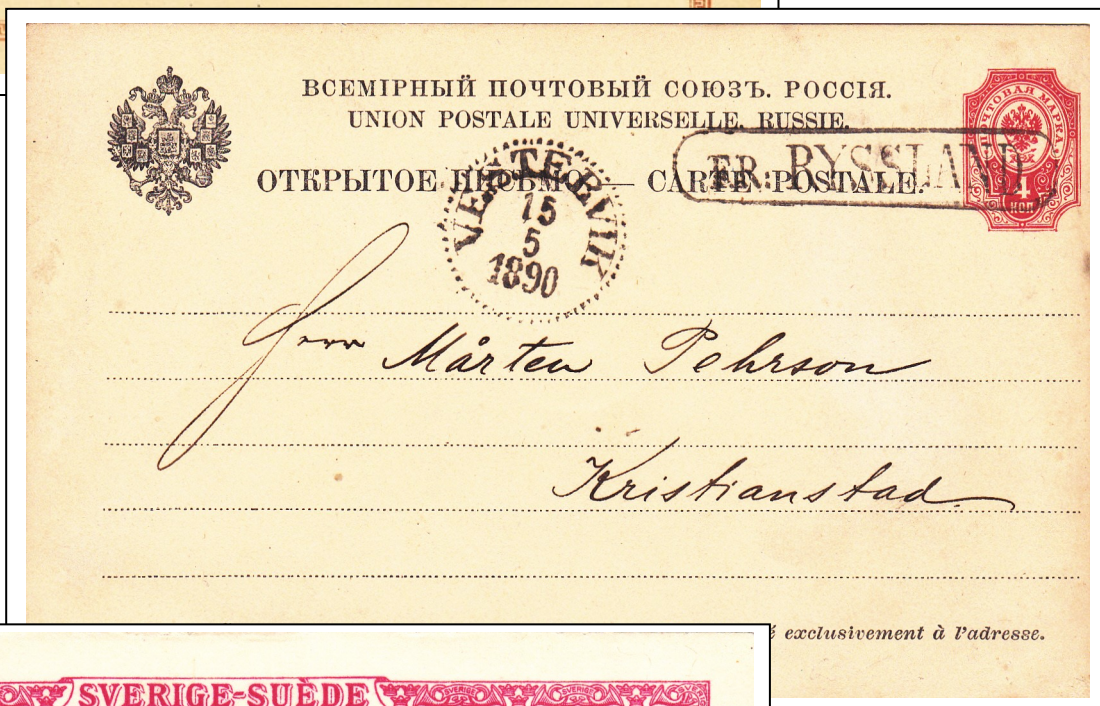 ВСЕМІРНЫЙ ПОЧТОВЫЙ СОЮЗЪ. РОССІЯ.
UNION POSTALE UNIVERSELLE. RUSSIE.
ОТКРЫТОЕ ПИСЬМО — CARTE POSTALE.
FR: RYSSLAND
ПОЧТОВАЯ МАРКА
4
КОП
VESTERVIK
15
5
1890
Herr Mårten Pehrson
Kristianstad.
é exclusivement à l'adresse.
SVERIGE-SUÈDE
SVERIGE
SVERIGE